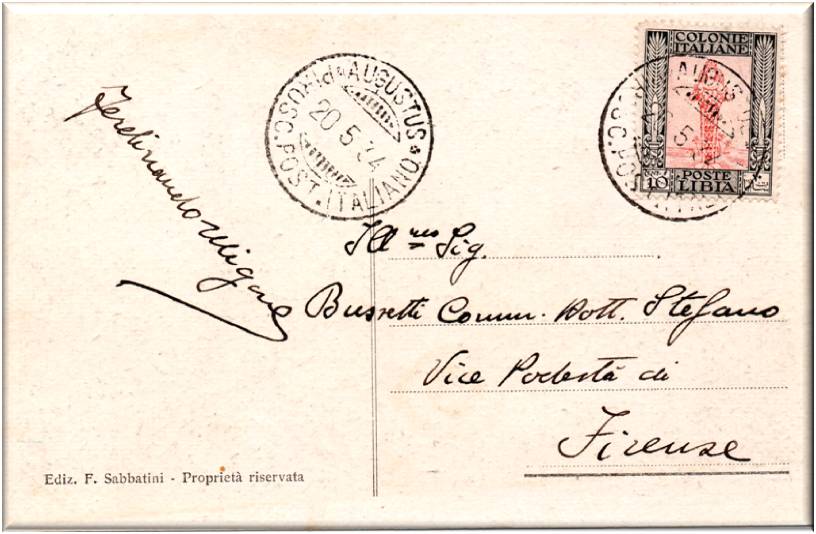 COLONIE
ITALIANE
10 POSTE
LIBIA
PIROSC. POST. ITALIANO
AUGUSTUS
20.5.34
Ferdinando
Ill Sig.
Comm. Dott. Stefano
Vice Podestà di
Firenze
Ediz. F. Sabbatini - Proprietà riservata